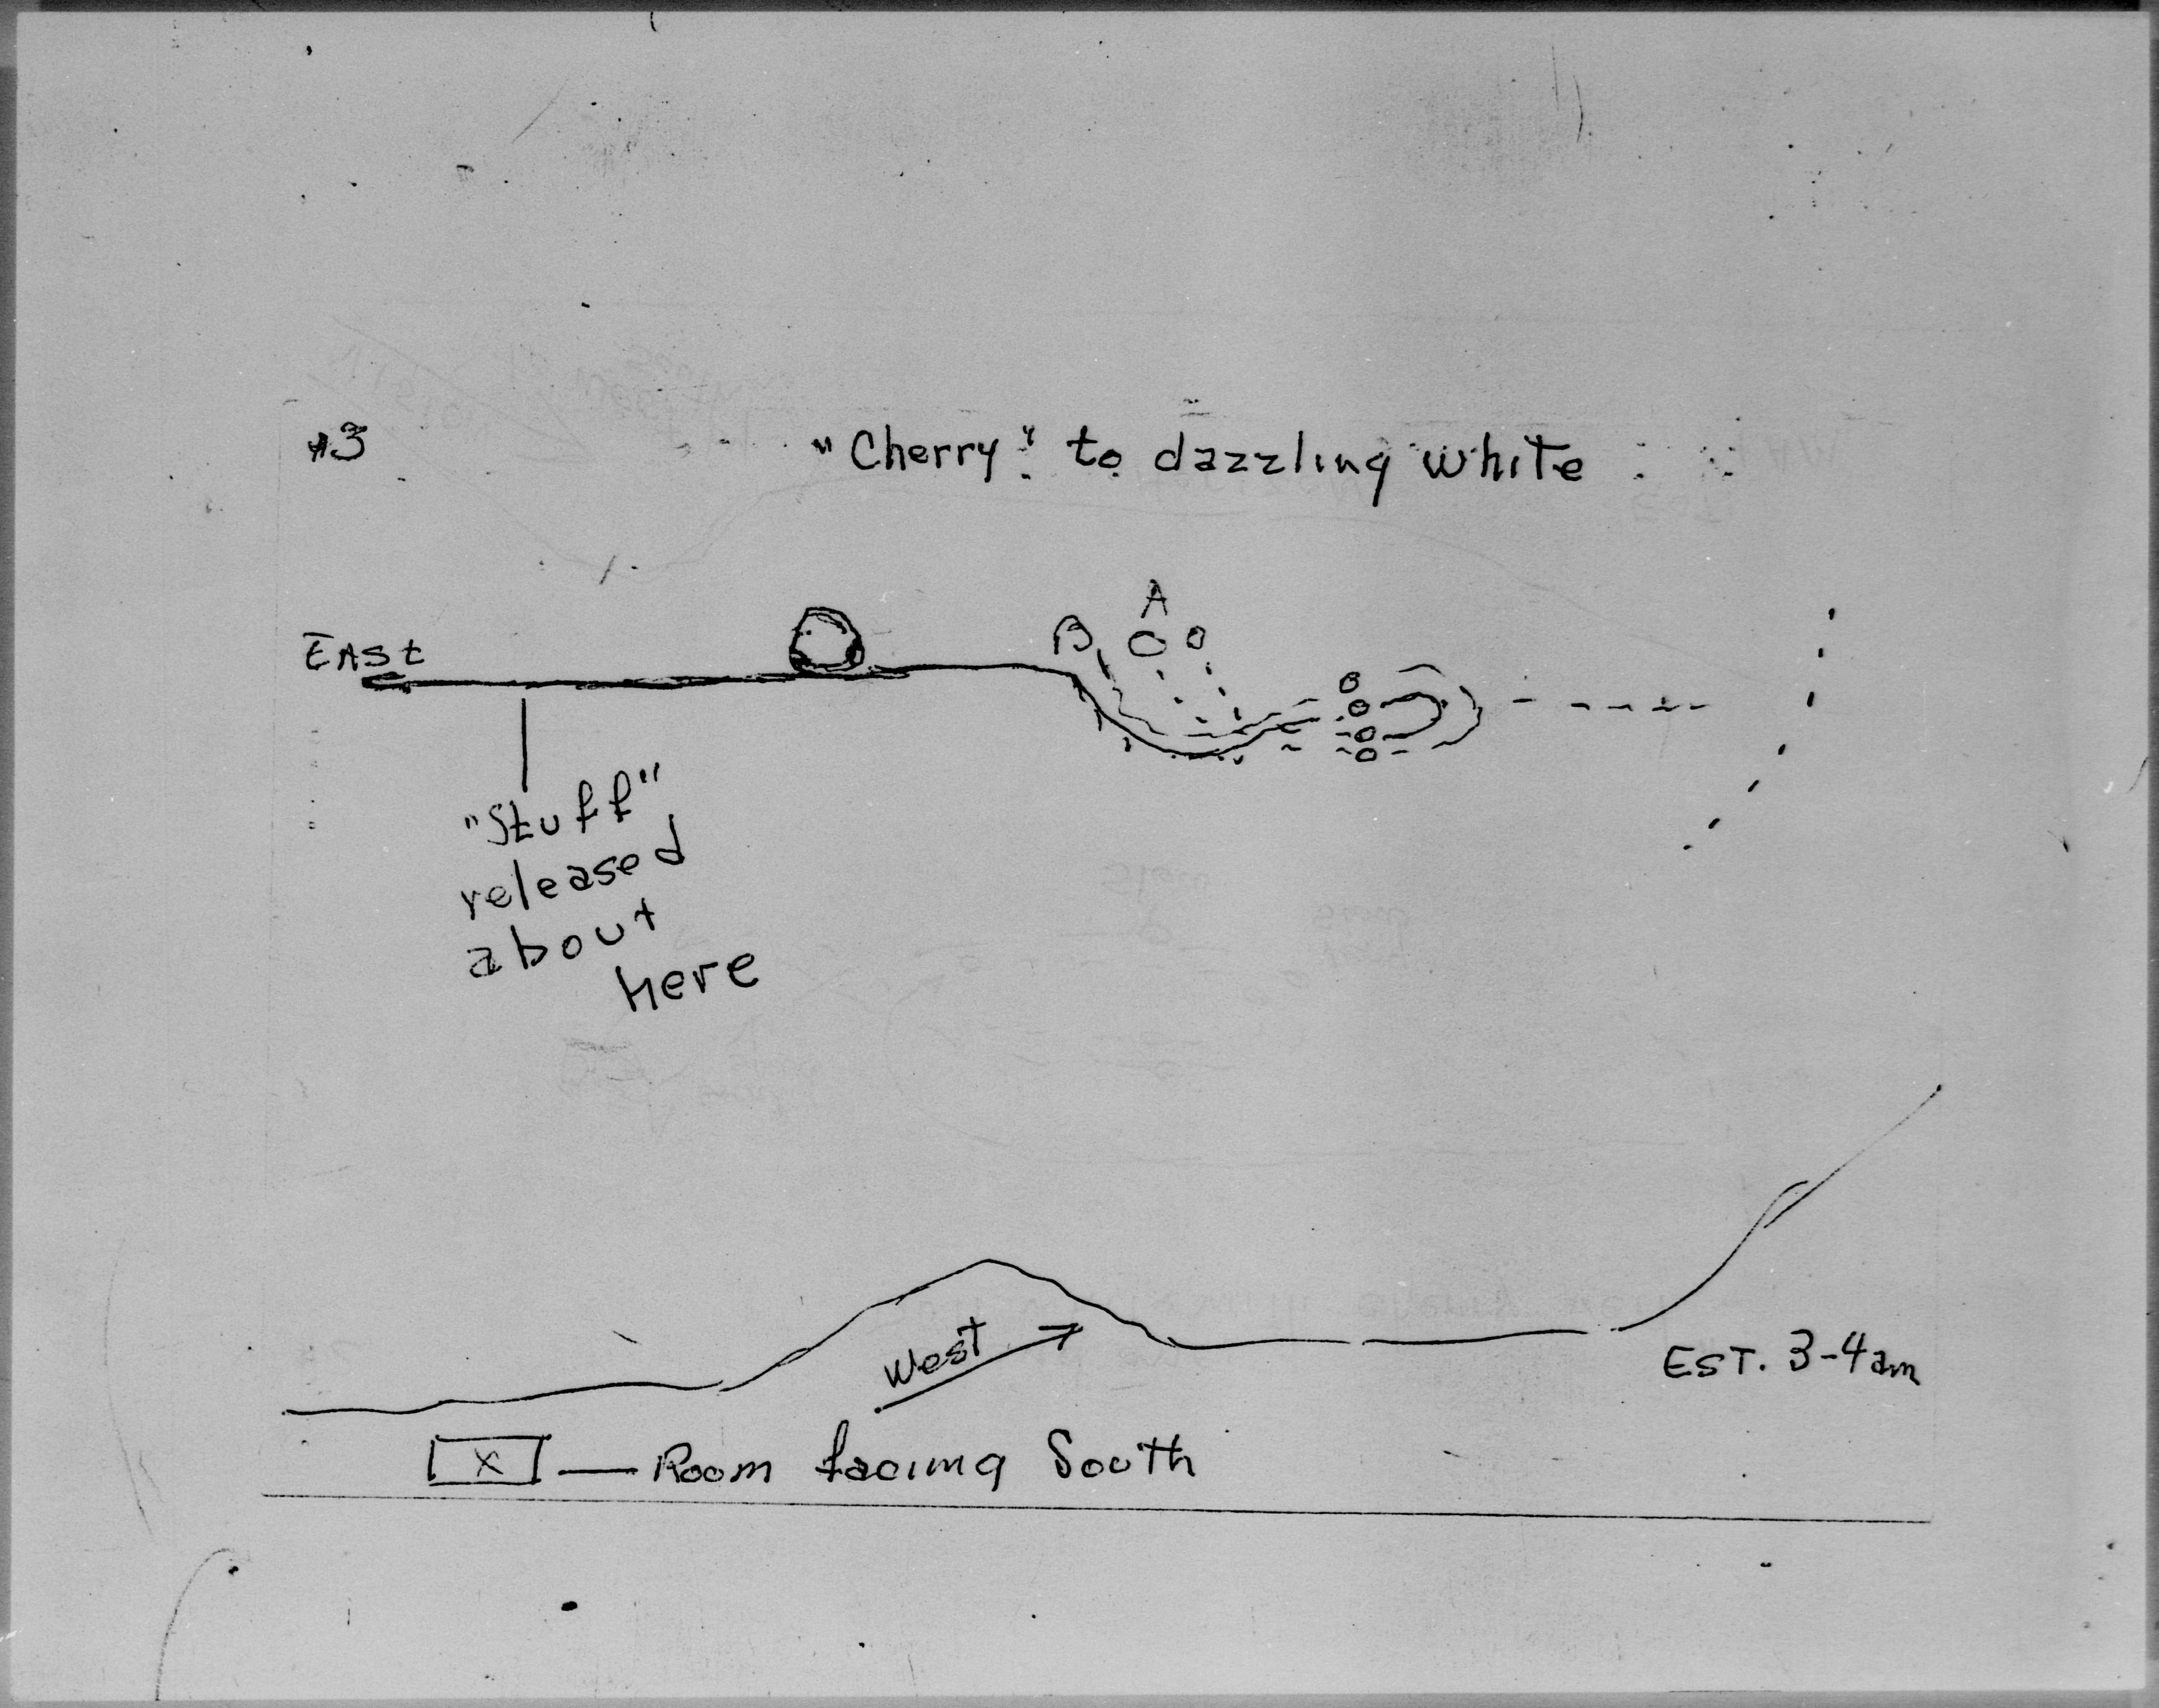 #3
"Cherry" to dazzling white
A
B
East
"Stuff"
released
about
here
West
EST. 3-4am
X
Room facing South